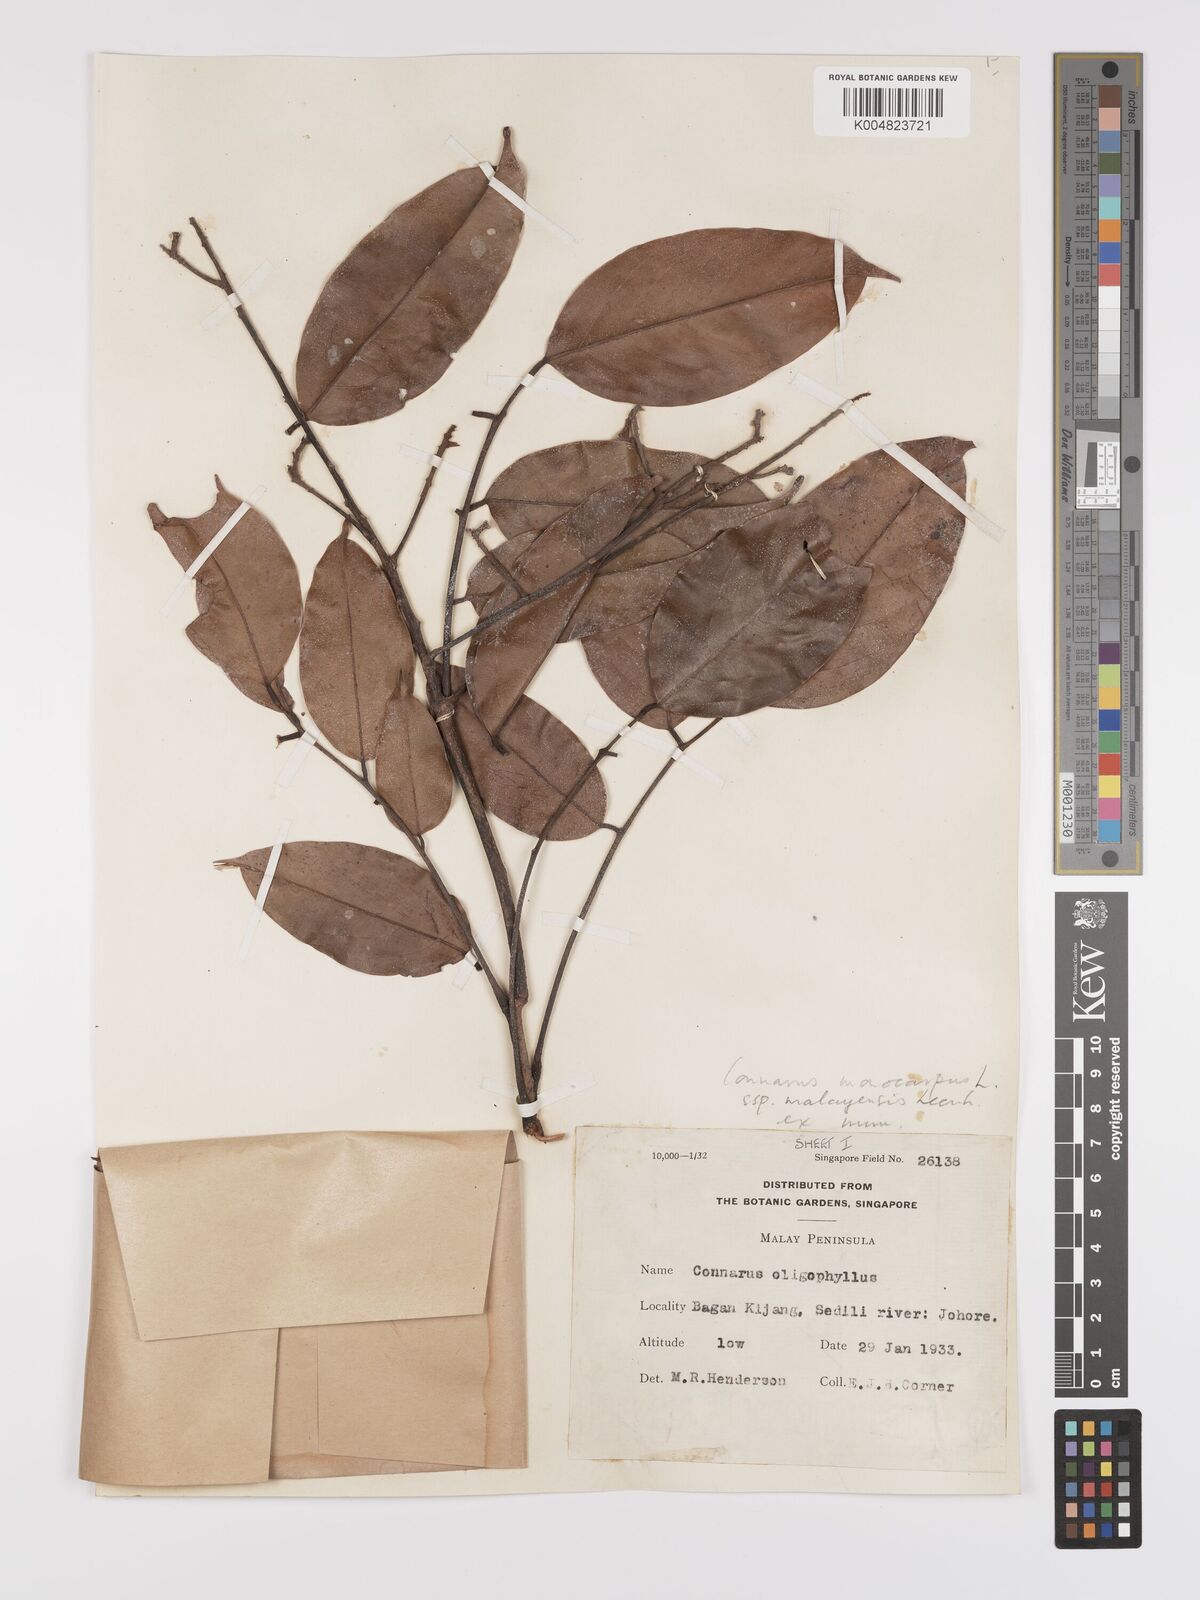 ROYAL BOTANIC GARDENS KEW
K004823721
Connarus monocarpus L.
ssp. malayensis Leenh.
ex num.
SHEET I
10,000—1/32 Singapore Field No. 26138
DISTRIBUTED FROM
THE BOTANIC GARDENS, SINGAPORE
MALAY PENINSULA
Name Connarus oligophyllus
Locality Bagan Kijang, Sedili river: Johore.
Altitude low Date 29 Jan 1933.
Det. M.R.Henderson Coll. E.J.H.Corner
inches
centimeters
Density
Don Williams
M001230
Kew
Royal Botanic Gardens
copyright reserved
0 1 2 3 4 5 6 7 8 9 10
cm